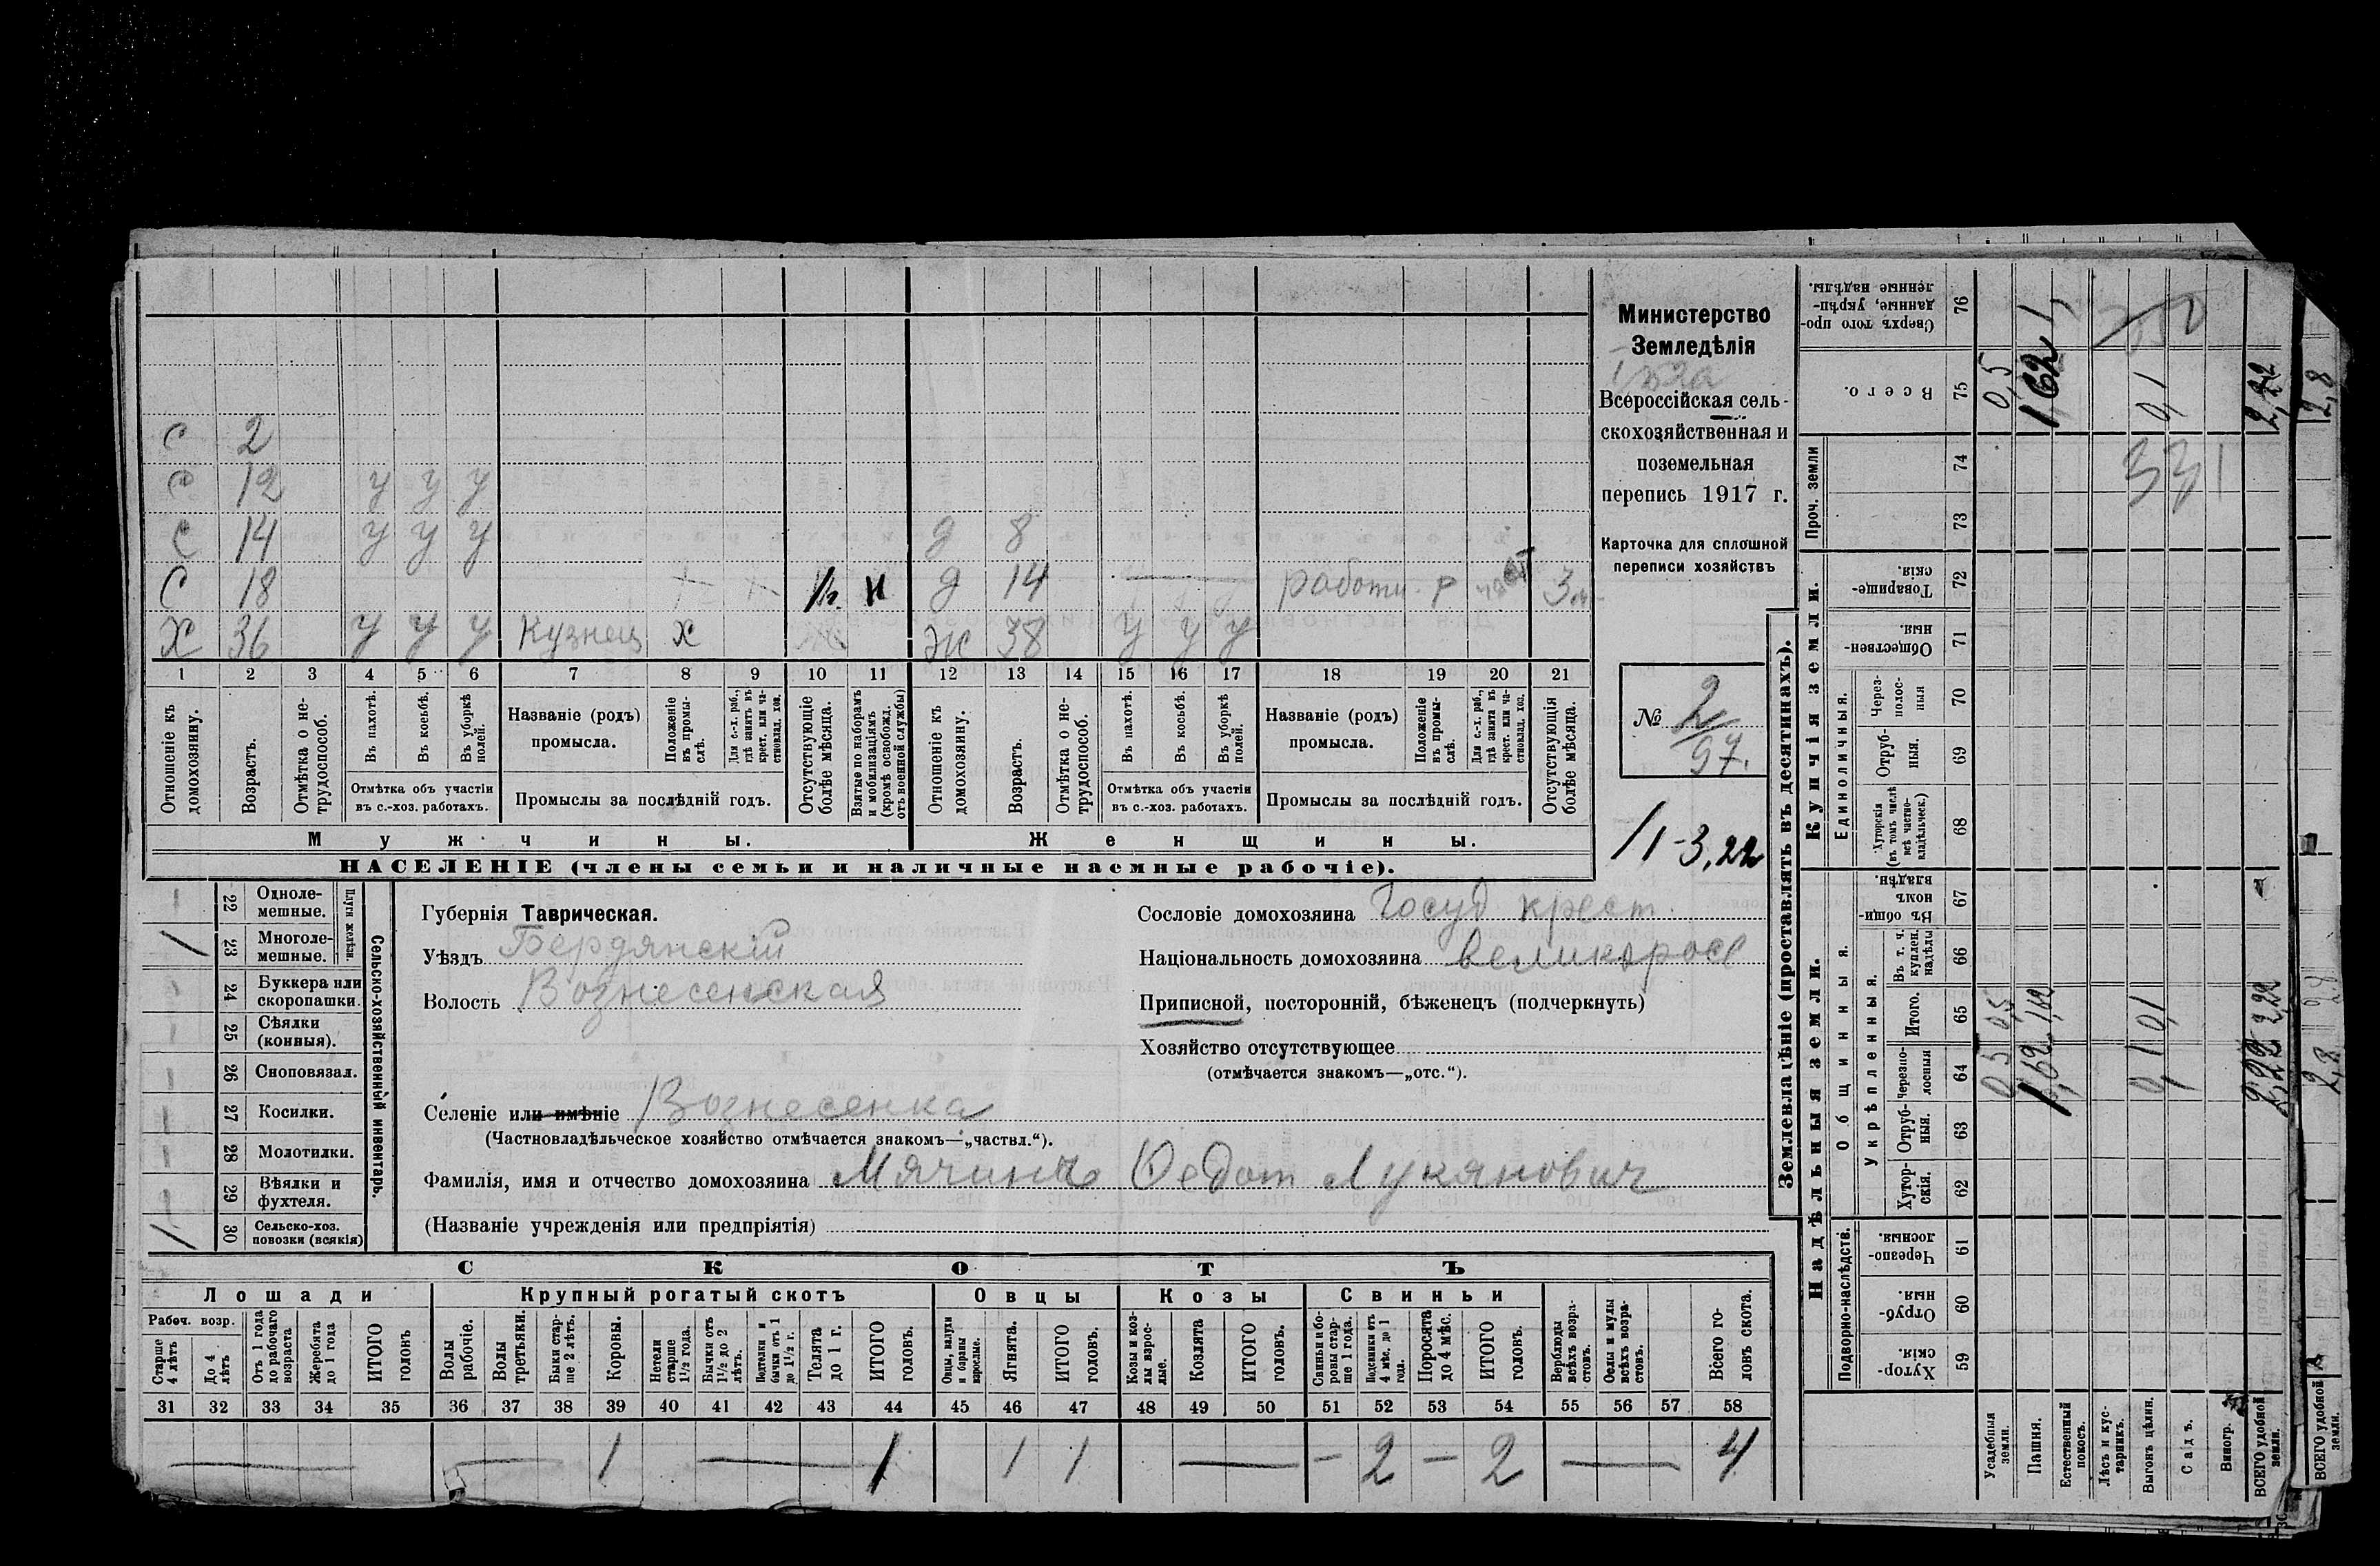 С 2
С 12 у у у
С 14 у у у д 8
С 18 д 14 работн. р 3 м.
Х 36 у у у Кузнец х ж 38 у у у
1 2 3 4 5 6 7 8 9 10 11 12 13 14 15 16 17 18 19 20 21
Отношеніе къ домохозяину.
Возрастъ.
Отмѣтка о не-трудоспособ.
Въ пахотѣ.
Въ косьбѣ.
Въ уборкѣ полей.
Отмѣтка объ участіи
въ с.-хоз. работахъ.
Названіе (родъ)
промысла.
Положеніе въ промы-слѣ.
Для с.-х. раб., гдѣ занятъ въ крест. или ча-стновлад. хоз.
Промыслы за послѣдній годъ.
Отсутствующіе болѣе мѣсяца.
Взятые по наборамъ и мобилизаціямъ (кромѣ освобожд. отъ военной службы)
Отношеніе къ домохозяину.
Возрастъ.
Отмѣтка о не-трудоспособ.
Въ пахотѣ.
Въ косьбѣ.
Въ уборкѣ полей.
Отмѣтка объ участіи
въ с.-хоз. работахъ.
Названіе (родъ)
промысла.
Положеніе въ промы-слѣ.
Для с.-х. раб., гдѣ занята въ крест. или ча-стновлад. хоз.
Промыслы за послѣдній годъ.
Отсутствующія болѣе мѣсяца.
Мужчины.
Женщины.
НАСЕЛЕНІЕ (члены семьи и наличные наемные рабочіе).
Министерство
Земледѣлія
Всероссійская сель-
скохозяйственная и
поземельная
перепись 1917 г.
Карточка для сплошной
переписи хозяйствъ
№ 2
97.
/1-3,22
22 Одноле-мешные.
23 Многоле-мешные. /
Плуги желѣзн.
24 Буккера или скоропашки.
25 Сѣялки (конныя).
26 Сноповязал.
27 Косилки.
28 Молотилки.
29 Вѣялки и фухтеля.
30 Сельско-хоз. повозки (всякія) /
Сельско-хозяйственный инвентарь.
Губернія Таврическая.
Уѣздъ Бердянскій
Волость Вознесенская
Сословіе домохозяина Госуд крест.
Національность домохозяина великоросс
Приписной, посторонній, бѣженецъ (подчеркнуть)
Хозяйство отсутствующее
(отмѣчается знакомъ—„отс.“).
Селеніе или имѣніе Вознесенка
(Частновладѣльческое хозяйство отмѣчается знакомъ—„частвл.“).
Фамилія, имя и отчество домохозяина Мячинъ Федот Лукянович
(Названіе учрежденія или предпріятія)
СКОТЪ
Лошади Крупный рогатый скотъ Овцы Козы Свиньи
Рабоч. возр.
Старше 4 лѣтъ
До 4 лѣтъ
Отъ 1 года до рабочаго возраста
Жеребята до 1 года
ИТОГО головъ
Волы рабочіе.
Волы третьяки.
Быки стар-ше 2 лѣтъ.
Коровы.
Нетели старше 1½ года.
Бычки отъ 1½ до 2 лѣтъ.
Подтелки и бычки отъ 1 до 1½ г.
Телята до 1 г.
ИТОГО головъ.
Овцы, валухи и бараны взрослые.
Ягнята.
ИТОГО головъ.
Козы и коз-лы взрос-лые.
Козлята
ИТОГО головъ.
Свиньи и бо-ровы стар-ше 1 года.
Подсвинки отъ 4 мѣс. до 1 года.
Поросята до 4 мѣс.
ИТОГО головъ.
Верблюды всѣхъ возра-стовъ.
Ослы и мулы всѣхъ возра-стовъ.
Всего го-ловъ скота.
31 32 33 34 35 36 37 38 39 40 41 42 43 44 45 46 47 48 49 50 51 52 53 54 55 56 57 58
— — 1 — 1 1 1 — — 2 — 2 — 4
Землевладѣніе (проставлять въ десятинахъ).
Купчія земли.
Надѣльныя земли.
Сверхъ того про-данные, укрѣп-ленные надѣлы. 76
Всего. 75
Проч. земли 74 73
Товарище-скія. 72
Обществен-ныя. 71
Единоличныя.
Через-полос-ныя 70
Отруб-ныя. 69
Хуторскія (въ томъ числѣ всѣ частно-владѣльческ.) 68
Общинныя.
Въ общи-номъ владѣн. 67
Укрѣпленныя.
Въ т. ч. куплен. надѣлы 66
Итого. 65
Черезпо-лосныя 64
Отруб-ныя. 63
Хутор-скія. 62
Подворно-наслѣдств.
Черезпо-лосныя. 61
Отруб-ныя. 60
Хутор-скія. 59
Усадебная земля. 0,5 0,5 0,5
Пашня. 1,62 1,62 1,62
Естественный покосъ.
Лѣсъ и кус-тарникъ.
Выгонъ цѣлин. 0,1 0,1 0,1
331
Садъ.
Виногр.
ВСЕГО удобной земли. 2,22 2,22 2,22
ВСЕГО удобной земли. 2,8 2,8